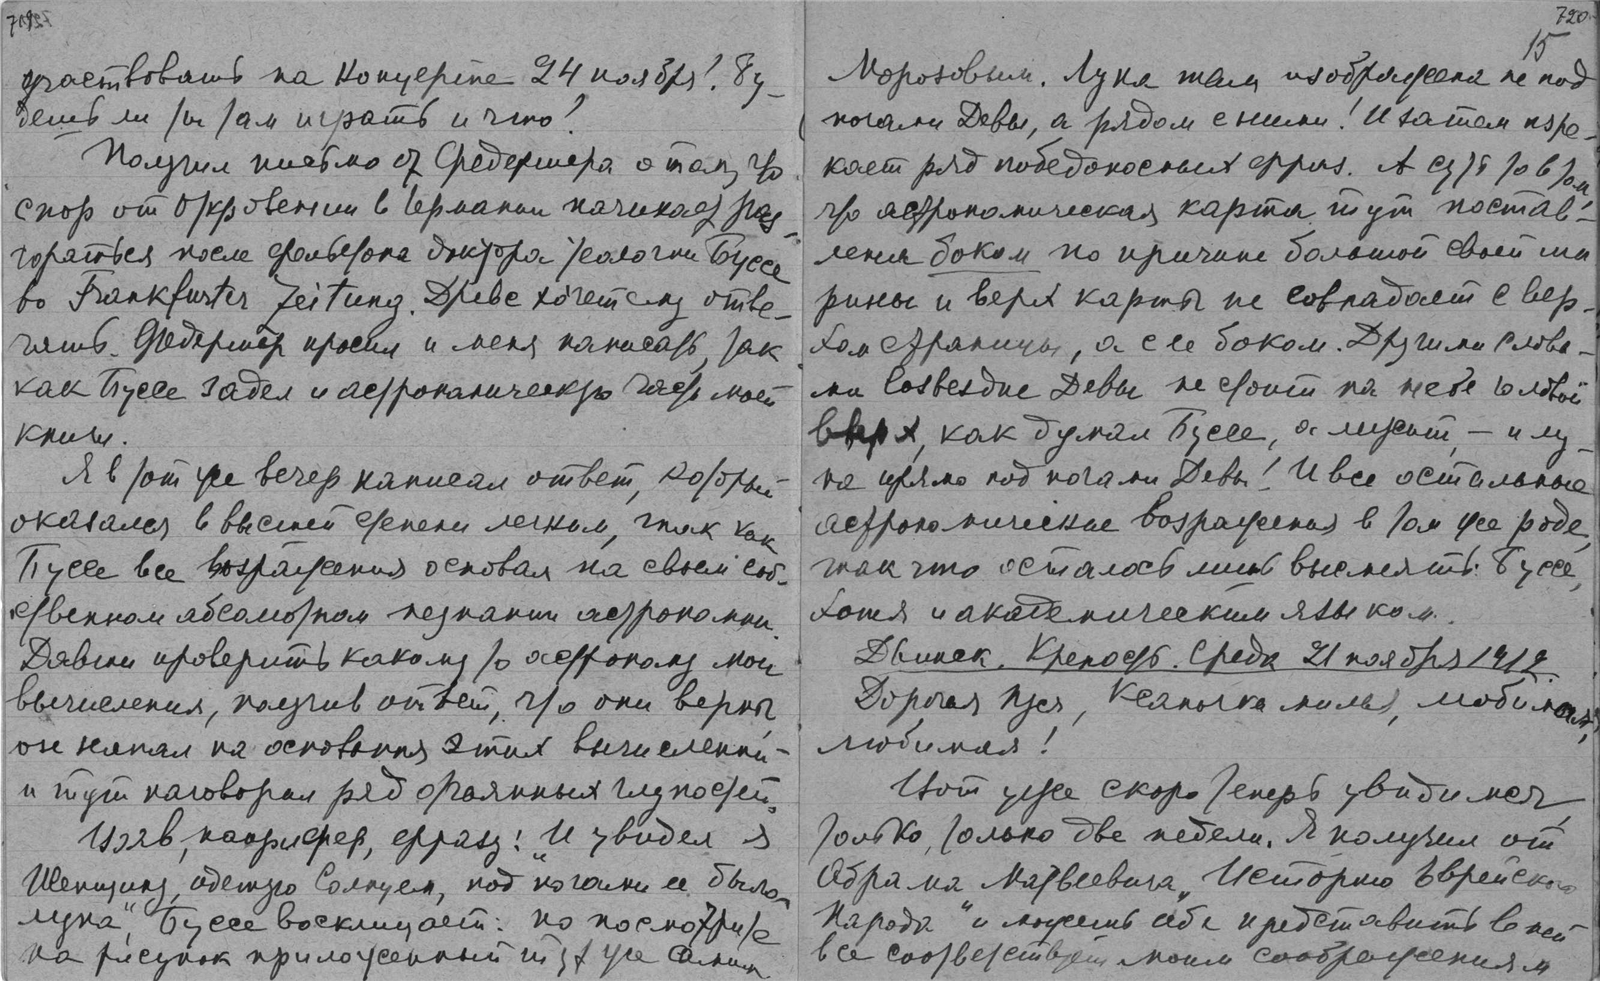 719
участвовать на концерте 24 ноября! Бу-
дешь ли ты там играть и что?
Получил письмо от Федершера о том, что
спор от Откровении в Германии начинает раз-
гораться после фельетона доктора теологии Буссе
во Frankfurter Zeitung. Древс хочет ему отве-
чать. Федершер просил и меня написать, так
как Буссе задел и астрономическую часть моей
книги.
Я в тот же вечер написал ответ, который
оказался в высшей степени легким, так как
Буссе все возражения основал на своем соб-
ственном абсолютном незнании астрономии.
Давши проверить какому то астроному мои
вычисления, получив ответ, что они верны,
он напал на основания этих вычислений-
и тут наговорил ряд отчаянных глупостей.
Взяв, например, фразу: "И увидел я
Женщину, одетую Солнцем, под ногами ее была
луна", Буссе восклицает: но посмотрите
на рисунок приложенный тут же самим
720
15
Морозовым. Луна там изображена не под
ногами Девы, а рядом с ними! И затем изре-
кает ряд победоносных фраз. А суть то в том,
что астрономическая карта тут постав-
лена боком по причине большой своей ши
рины и верх карты не совпадает с вер-
хом страницы, а с ее боком. Другими слова-
ми Созвездие Девы не стоит на небе головой
вверх, как думал Буссе, а лежит, - и лу-
на прямо под ногами Девы! И все остальные
астрономические возражения в том же роде,
так что осталось лишь высмеять Буссе,
хотя и академическим языком.
Двинск. Крепость. Среда 21 ноября 1912.
Дорогая Пуся, Ксаночка милая, любимая,
любимая!
Вот уже скоро теперь увидимся,
только, только две недели. Я получил от
Абрама Матвеевича "Историю Еврейского
Народа" и можешь себе представить в ней
все соответствует моим соображениям